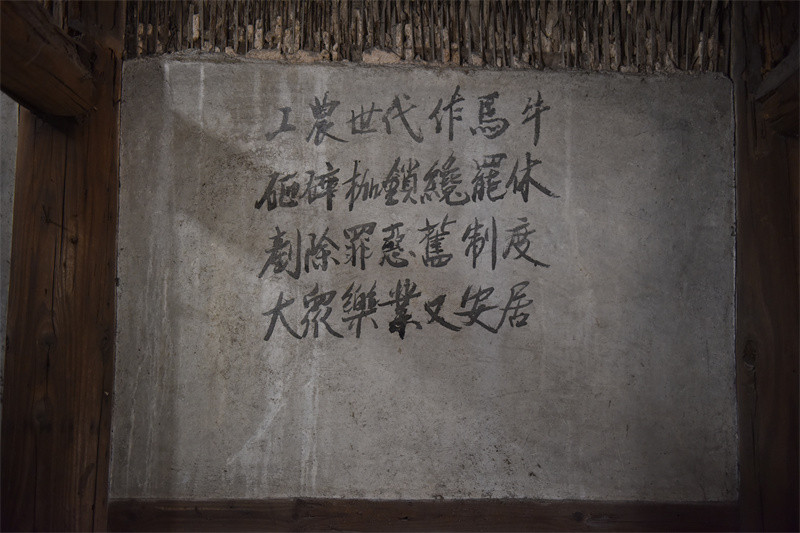 工農世代作馬牛
砸碎枷鎖纔罷休
剷除罪惡舊制度
大衆樂業又安居